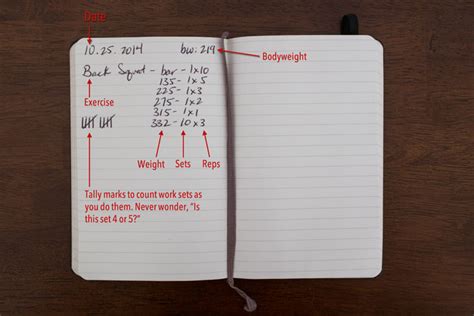 Date
10.25.2014 bw: 219
Bodyweight
Back Squat - bar - 1x10
135 - 1x5
Exercise
225 - 1x3
275 - 1x2
315 - 1x1
332 - 10x3
Weight Sets Reps
Tally marks to count work sets as
you do them. Never wonder, “Is
this set 4 or 5?”